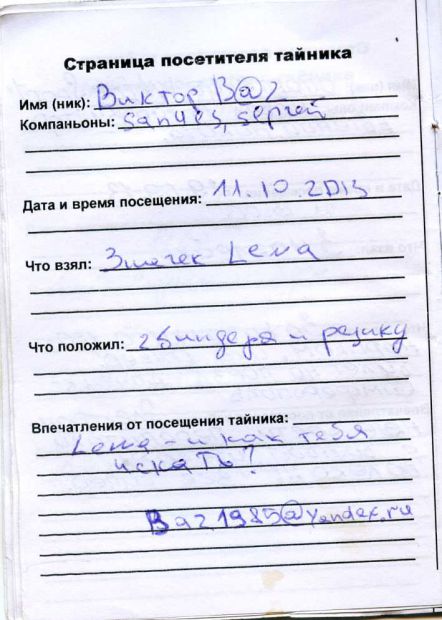 Страница посетителя тайника
Имя (ник): Виктор B@z
Компаньоны: Sanyes, Сергей
Дата и время посещения: 11.10.2013
Что взял: Значек Lena
Что положил: 2 биндера и резинку
Впечатления от посещения тайника:
Lena - и как тебя
искать?
Baz1985@yandex.ru